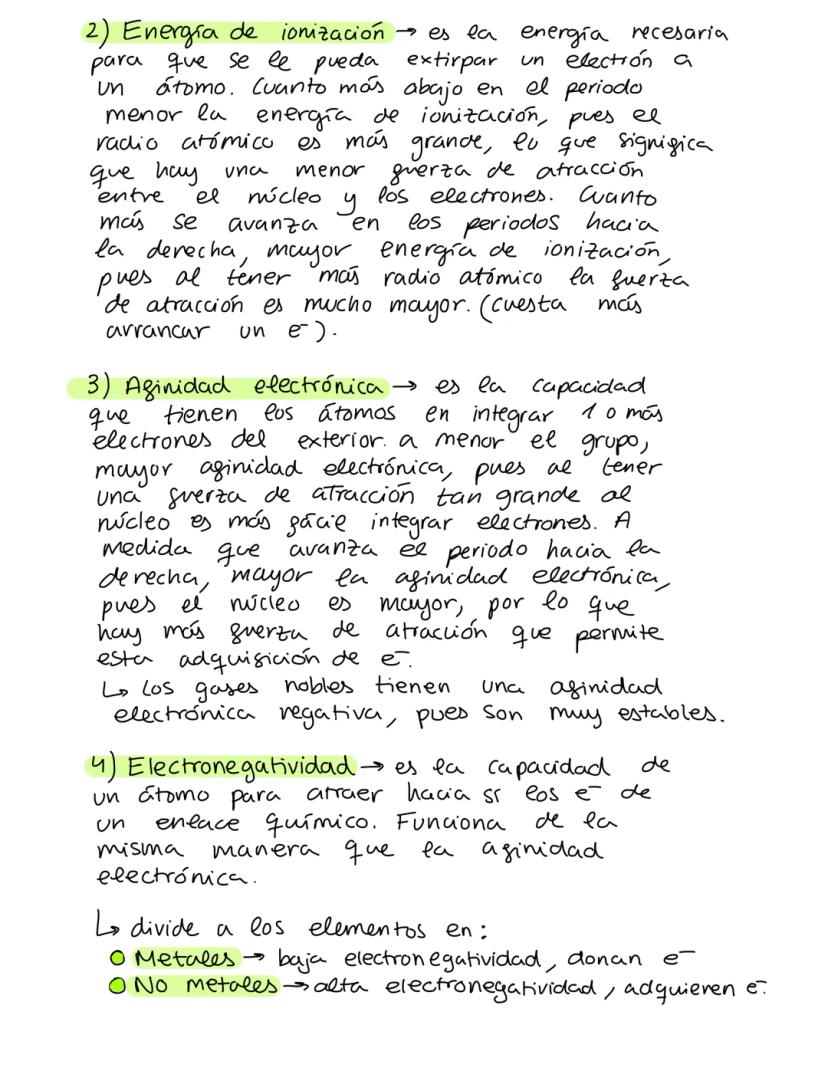 2) Energía de ionización → es la energía necesaria
para que se le pueda extirpar un electrón a
un átomo. Cuanto más abajo en el periodo
menor la energía de ionización, pues el
radio atómico es más grande, lo que significa
que hay una menor fuerza de atracción
entre el núcleo y los electrones. Cuanto
más se avanza en los periodos hacia
la derecha, mayor energía de ionización,
pues al tener más radio atómico la fuerza
de atracción es mucho mayor. (cuesta más
arrancar un e⁻).
3) Afinidad electrónica → es la capacidad
que tienen los átomos en integrar 1 o más
electrones del exterior. a menor el grupo,
mayor afinidad electrónica, pues al tener
una fuerza de atracción tan grande al
núcleo es más fácil integrar electrones. A
medida que avanza el periodo hacia la
derecha, mayor la afinidad electrónica,
pues el núcleo es mayor, por lo que
hay más fuerza de atracción que permite
esta adquisición de e⁻.
↳ Los gases nobles tienen una afinidad
electrónica negativa, pues son muy estables.
4) Electronegatividad → es la capacidad de
un átomo para atraer hacia sí los e⁻ de
un enlace químico. Funciona de la
misma manera que la afinidad
electrónica.
↳ divide a los elementos en:
● Metales → baja electronegatividad, donan e⁻
● No metales → alta electronegatividad, adquieren e⁻.